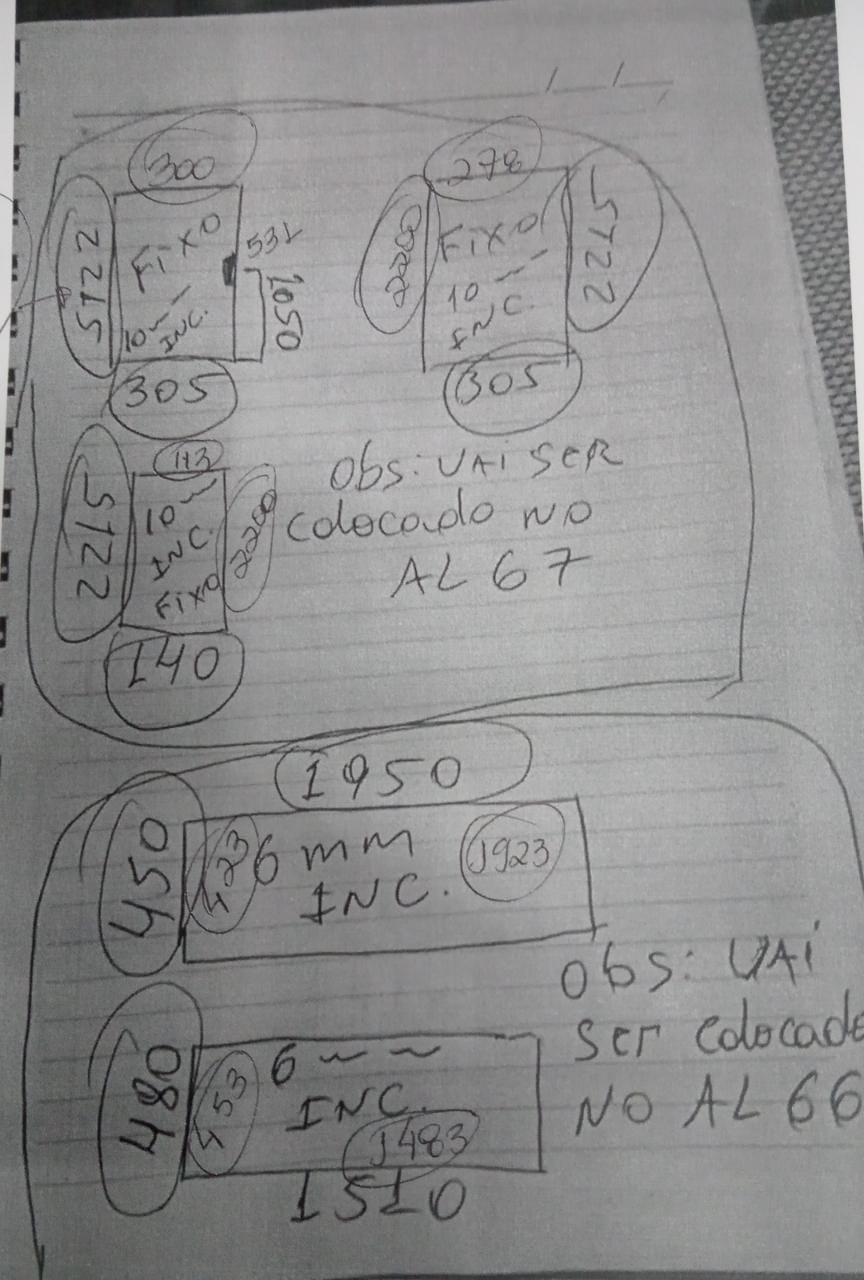 300
2215
FiXO
10 ~~
INC.
531
1050
305
278
2200
FiXO
10 ~~
INC.
2215
305
113
2215
10 ~
INC.
FiXO
2200
140
Obs: VAi SER
colocado NO
AL 67
1950
450
423
6 mm
INC.
1923
480
453
6 ~~
INC.
1483
1510
Obs: VAi
Ser colocado
NO AL 66